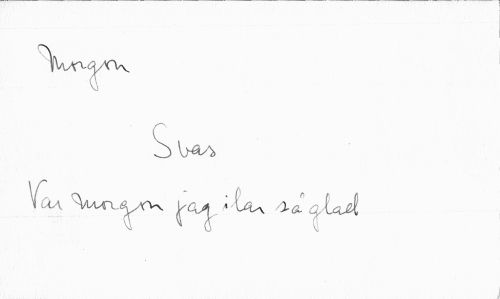 Morgon
Svas
Var morgon jag ilar så glad